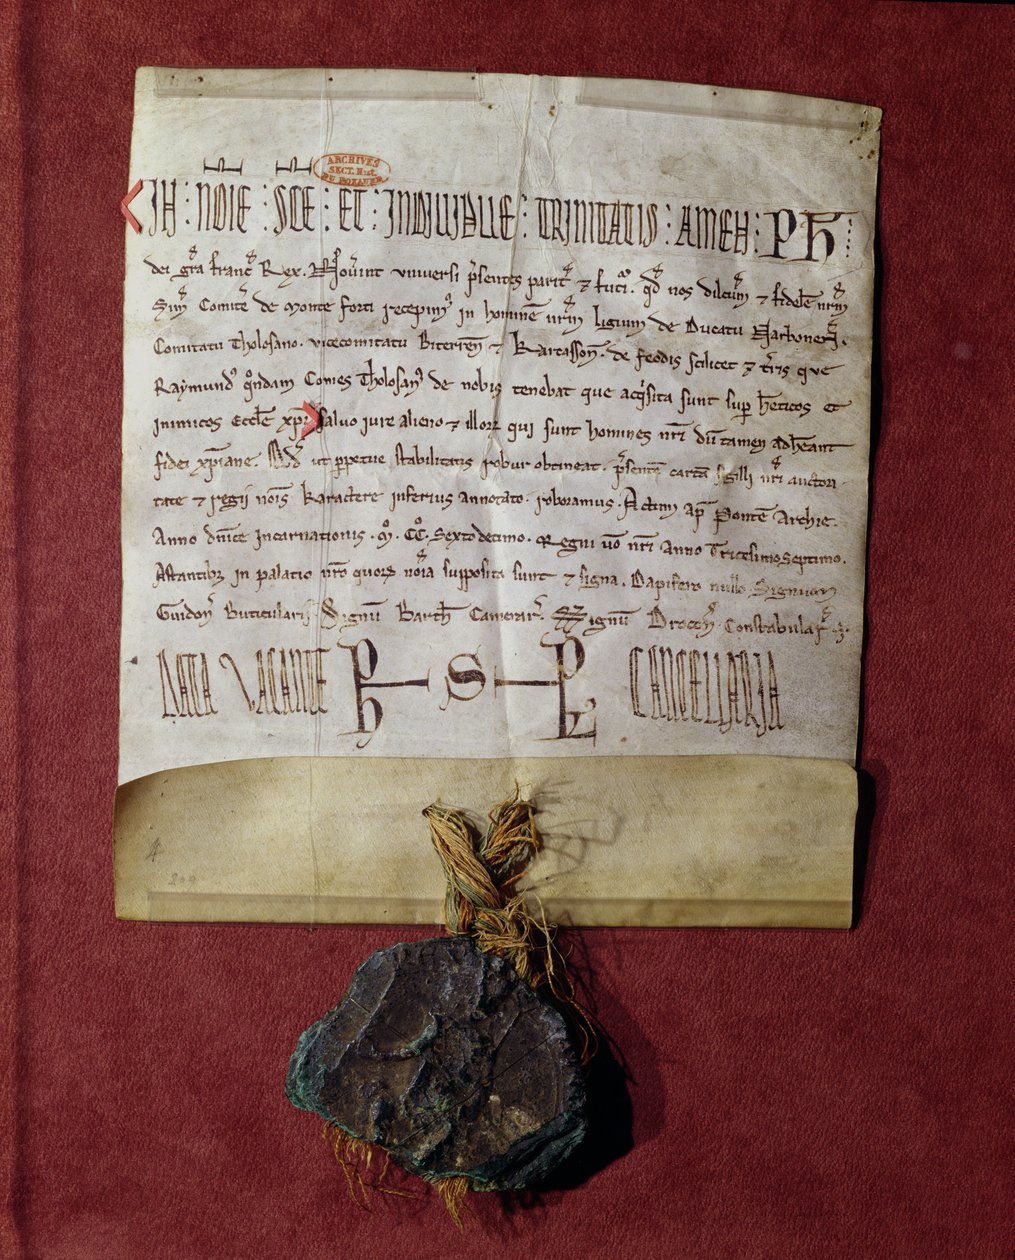 ARCHIVES
SECT. Hist.
DU ROYAUME
IH : NOIE : SCE : ET : INDIVIDUE : TRINITATIS : AMEH : PH
dei gr̄a francͦ Rex. Noverint universi p̄sentes parit̄ & fut̄i. qd̄ nos dilectū & fidelē nr̄m
Sim̄ Comitē de Monte forti recepimꝰ in hominē nr̄m ligium de Ducatu Narbonen̄.
Comitatu Tholosano. vicecomitatu Biterren̄ & Karcasson̄. de feodis scilicet & t̄ris que
Raymundꝰ qͦndam Comes Tholosanꝰ de nobis tenebat que acq̇sita sunt sup̄ h̄eticos et
inimicos Eccl̄e xp̄i salvo iure alieno & illorꝝ qui sunt homines nr̄i dū tamen adh̄eant
fidei xp̄iane. Qd̄ ut pꝑetue stabilitatis robur obtineat. p̄sentē cartā sigilli nr̄i auctori-
tate & regii noīs karactere inferius annotato. roboramus. Actum ap̄ Pontē Archie.
Anno dn̄ice Incarnationis. Mͦ. CCͦ. Sextodecimo. Regni vō nr̄i Anno Tricesimoseptimo.
Astantibꝰ in palatio nr̄o quorꝝ noīa supposita sunt & signa. Dapifero nullo. Signum
Guidonꝭ Buticularii Signū Barth̄ Camerar̄. Signū Drocōꝭ Constabular̄.
DATA VACANTE PH S PL CANCELLARIA